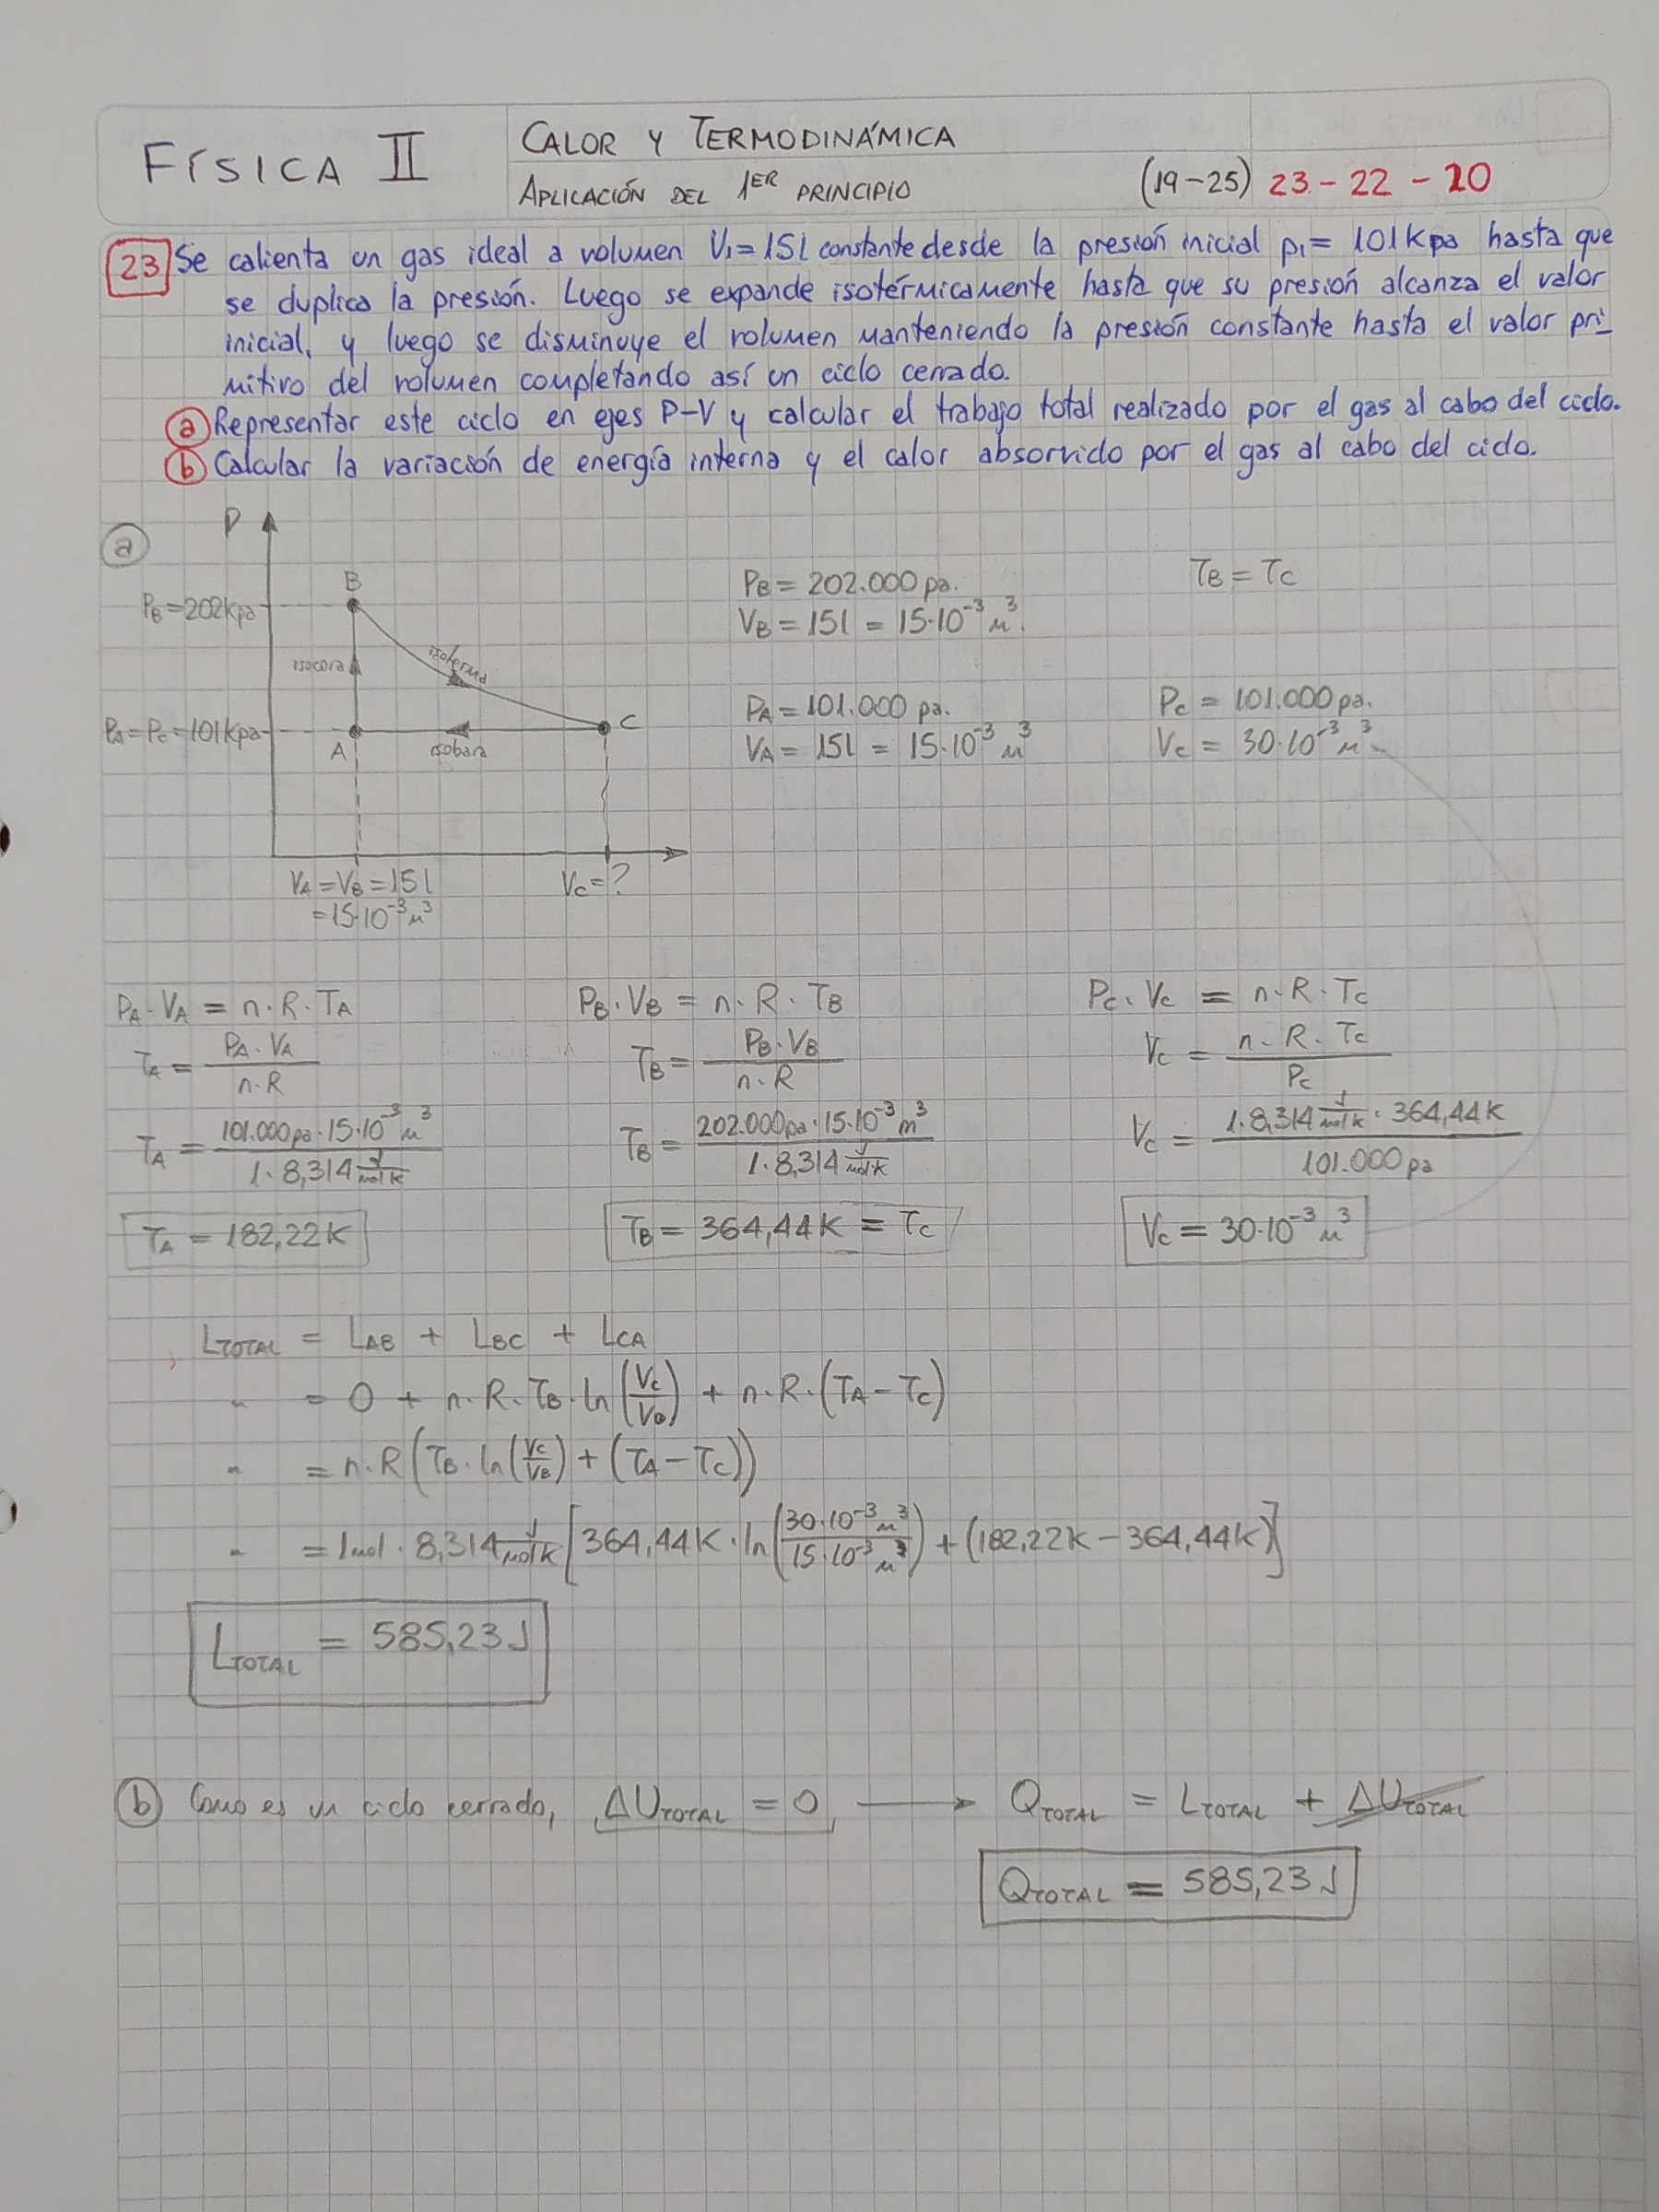 FÍSICA II
CALOR Y TERMODINÁMICA
APLICACIÓN DEL 1ER PRINCIPIO
(19-25) 23-22-20
23 Se calienta un gas ideal a volumen V₁=15l constante desde la presión inicial p₁= 101Kpa hasta que
se duplica la presión. Luego se expande isotérmicamente hasta que su presión alcanza el valor
inicial, y luego se disminuye el volumen manteniendo la presión constante hasta el valor pri-
mitivo del volumen completando así un ciclo cerrado.
a Representar este ciclo en ejes P-V y calcular el trabajo total realizado por el gas al cabo del ciclo.
b Calcular la variación de energía interna y el calor absorvido por el gas al cabo del ciclo.
a
P
B
PB=202Kpa
isocora
isoterma
PA=PC=101Kpa
A
isobara
C
VA=VB=15l
=15·10⁻³m³
VC=?
PB = 202.000pa.
VB = 15l = 15·10⁻³m³.
TB = TC
PA = 101.000 pa.
VA = 15l = 15·10⁻³m³
PC = 101.000pa.
VC = 30·10⁻³m³
PA·VA = n·R·TA
TA = PA·VA / n·R
TA = 101.000pa·15·10⁻³m³ / 1·8,314 J/molK
TA = 182,22K
PB·VB = n·R·TB
TB = PB·VB / n·R
TB = 202.000pa·15·10⁻³m³ / 1·8,314 J/molK
TB = 364,44K = TC
PC·VC = n·R·TC
VC = n·R·TC / PC
VC = 1·8,314 J/molK·364,44K / 101.000pa
VC = 30·10⁻³m³
LTOTAL = LAB + LBC + LCA
" = 0 + n·R·TB·ln(VC/VB) + n·R·(TA-TC)
" = n·R(TB·ln(VC/VB)+(TA-TC))
" = 1mol·8,314 J/molK[364,44K·ln(30·10⁻³m³/15·10⁻³m³)+(182,22K-364,44K)]
LTOTAL = 585,23J
b Como es un ciclo cerrado, ΔUTOTAL = 0 → QTOTAL = LTOTAL + ΔUTOTAL
QTOTAL = 585,23J